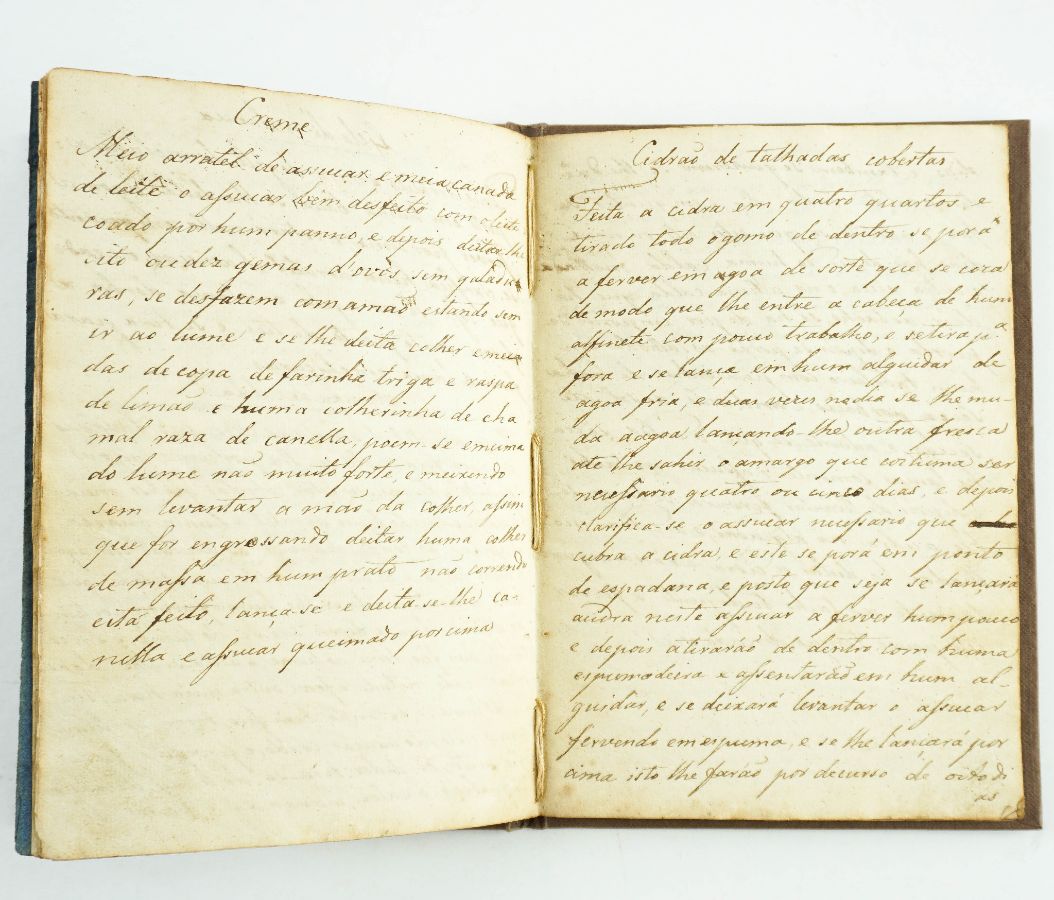 Creme
Meio arratel de assucar e meia canada
de leite o assucar bem desfeito com o leite
coado por hum panno, e depois deitar lhe
oito ou dez gemas d'ovos sem galadu
ras, se desfazem com a mão estando sem
ir ao lume e se lhe deita colher e meia
das de copa de farinha triga e raspa
de limão e huma colherinha de cha
mal raza de canella, poem-se em cima
do lume não muito forte, e meixendo
sem levantar a mão da colher, assim
que for engrossando deitar huma colher
de massa em hum prato não correndo
está feito, lança-se e deita-se-lhe ca-
nella e assucar queimado por cima
Cidrão de talhadas cobertas
Feita a cidra em quatro quartos, e
tirado todo o gomo de dentro se porá
a ferver em agoa de sorte que se coza
de modo que lhe entre a cabeça de hum
alfinete com pouco trabalho, e se tira pª
fora e se lança em hum alguidar de
agoa fria, e duas vezes no dia se lhe mu-
da a agoa lançando-lhe outra fresca
ate lhe sahir o amargo que costuma ser
necessario quatro ou cinco dias, e depois
clarifica-se o assucar necessario que
cubra a cidra, e este se porá em ponto
de espadana, e posto que seja se lançará
a cidra neste assucar a ferver hum pouco
e depois a tirarão de dentro com huma
espumadeira e assentarão em hum al-
guidar, e se deixará levantar o assucar
fervendo em espuma, e se lhe lançará por
cima isto lhe farão por decurso de oito di
as